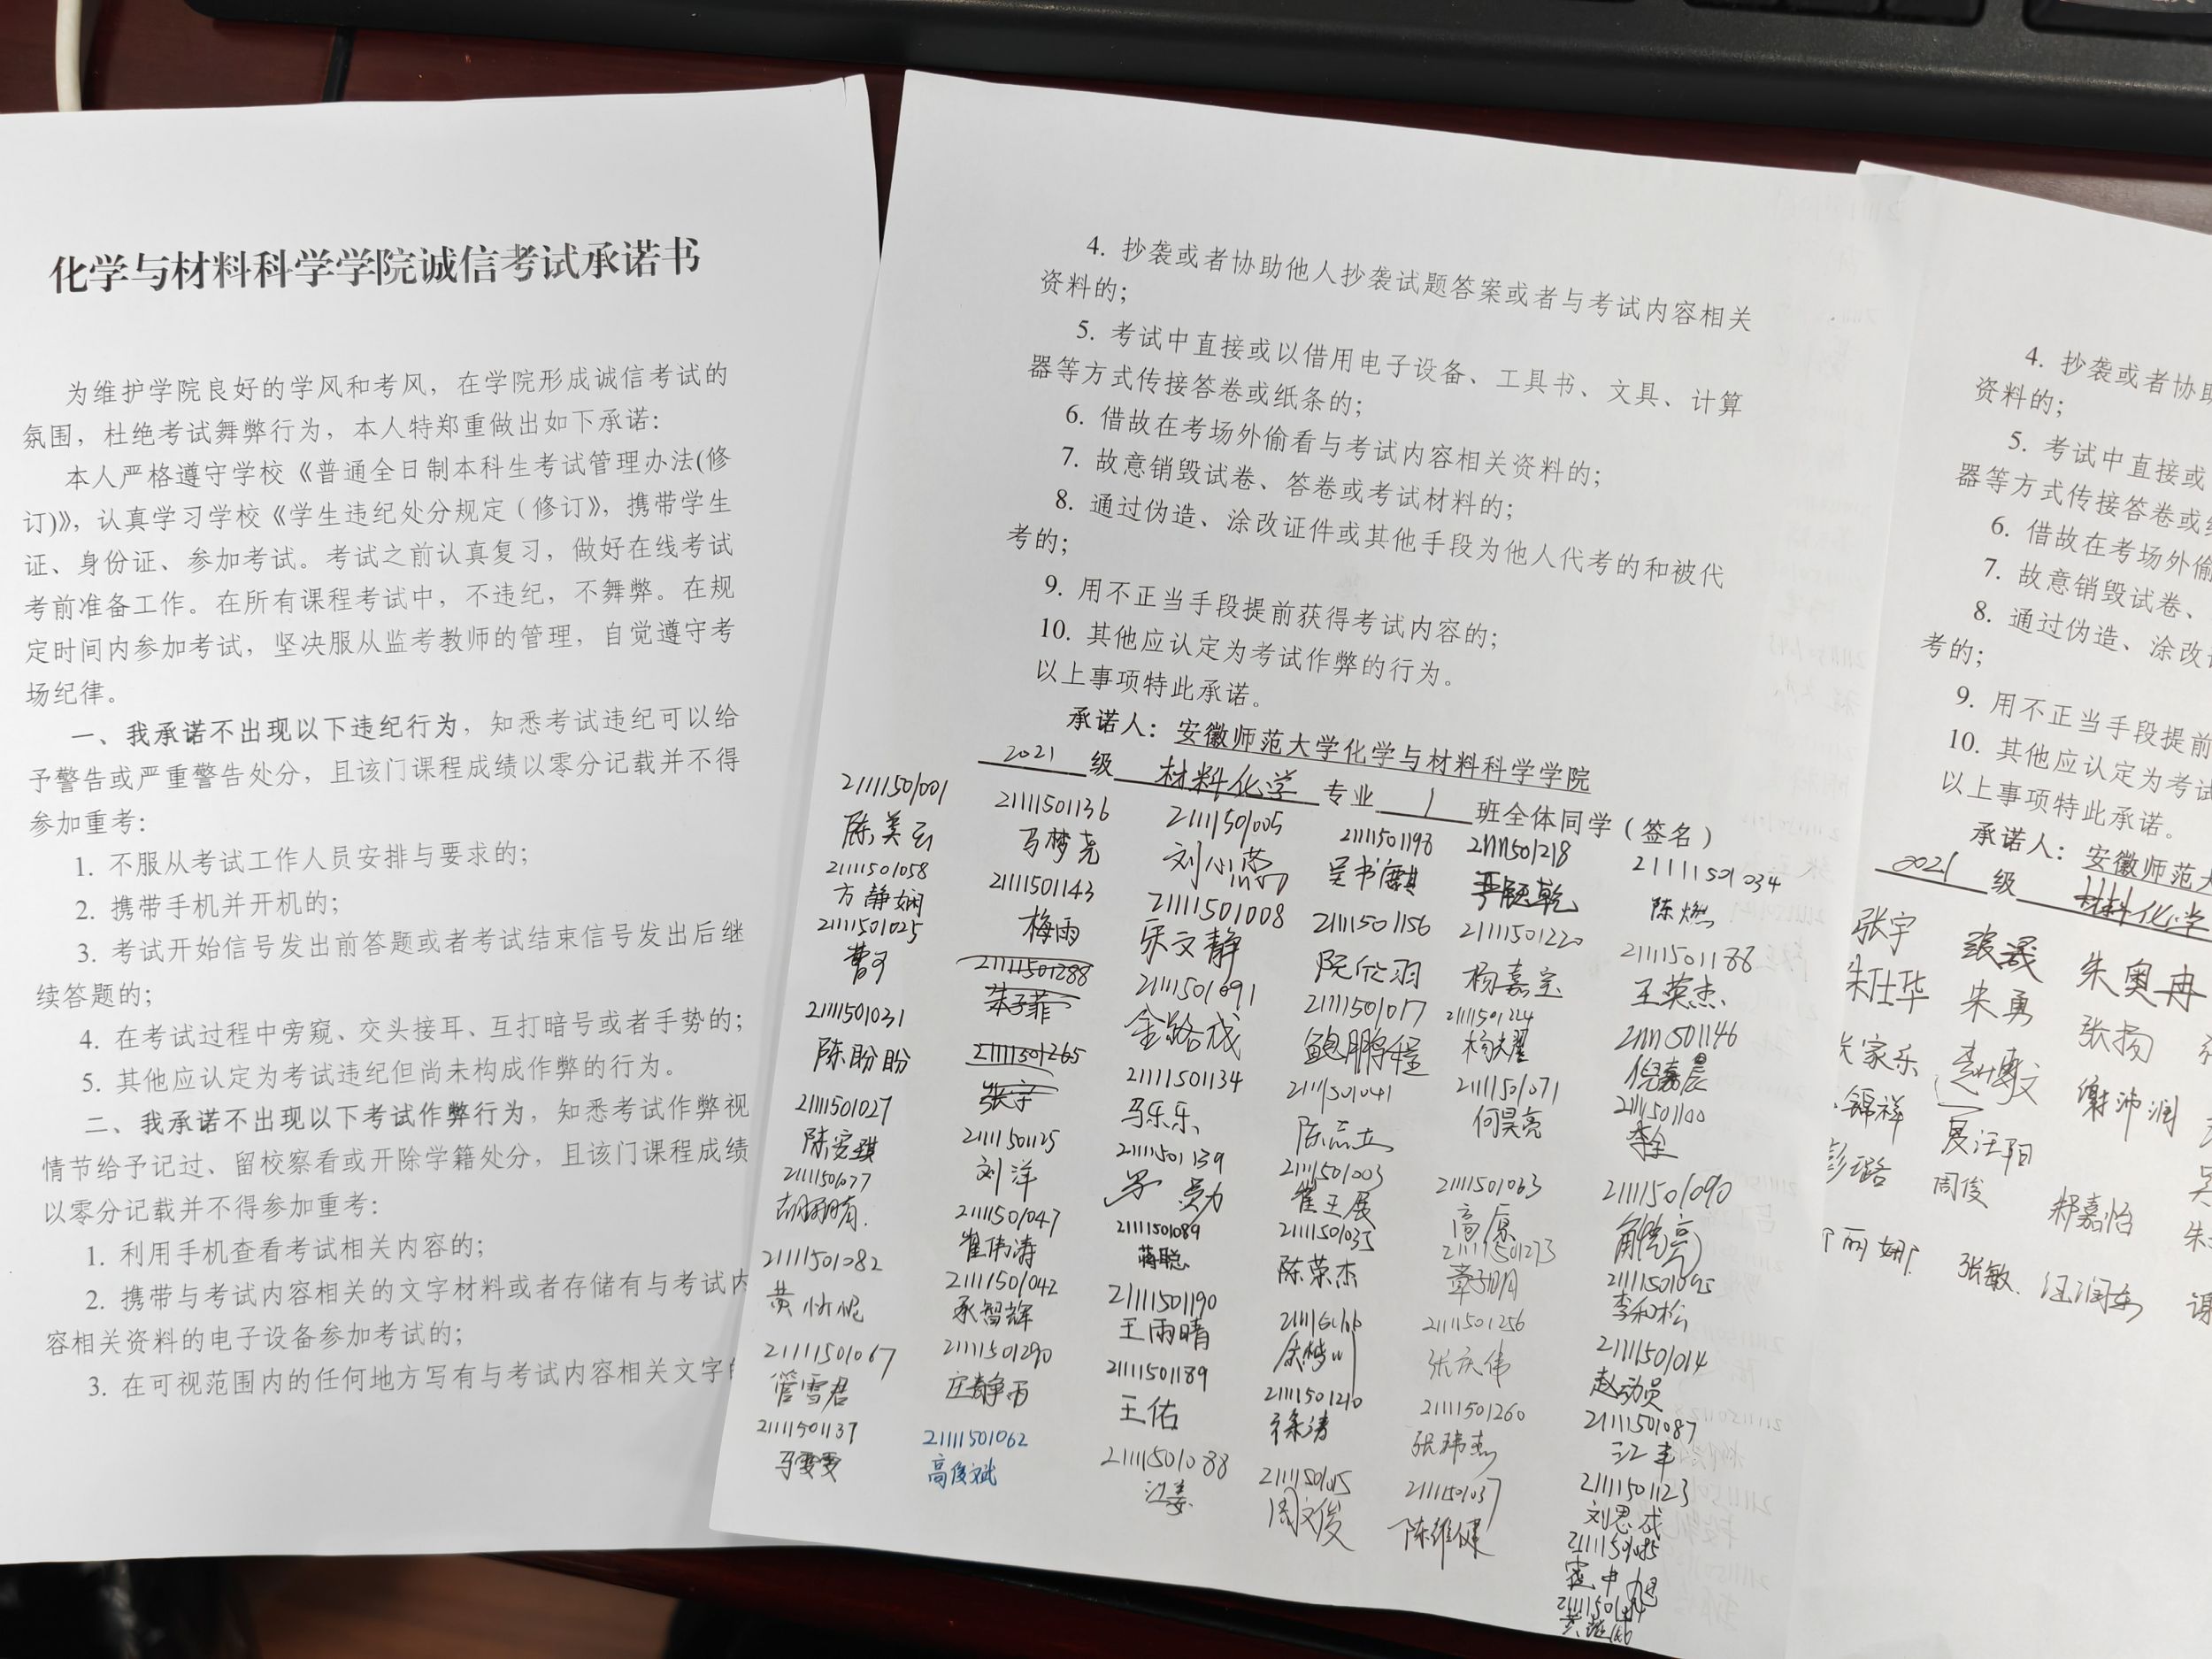 化学与材料科学学院诚信考试承诺书
为维护学院良好的学风和考风，在学院形成诚信考试的
氛围，杜绝考试舞弊行为，本人特郑重做出如下承诺：
本人严格遵守学校《普通全日制本科生考试管理办法(修
订)》，认真学习学校《学生违纪处分规定（修订》，携带学生
证、身份证、参加考试。考试之前认真复习，做好在线考试
考前准备工作。在所有课程考试中，不违纪，不舞弊。在规
定时间内参加考试，坚决服从监考教师的管理，自觉遵守考
场纪律。
一、我承诺不出现以下违纪行为，知悉考试违纪可以给
予警告或严重警告处分，且该门课程成绩以零分记载并不得
参加重考：
1. 不服从考试工作人员安排与要求的；
2. 携带手机并开机的；
3. 考试开始信号发出前答题或者考试结束信号发出后继
续答题的；
4. 在考试过程中旁窥、交头接耳、互打暗号或者手势的；
5. 其他应认定为考试违纪但尚未构成作弊的行为。
二、我承诺不出现以下考试作弊行为，知悉考试作弊视
情节给予记过、留校察看或开除学籍处分，且该门课程成绩
以零分记载并不得参加重考：
1. 利用手机查看考试相关内容的；
2. 携带与考试内容相关的文字材料或者存储有与考试内
容相关资料的电子设备参加考试的；
3. 在可视范围内的任何地方写有与考试内容相关文字
4. 抄袭或者协助他人抄袭试题答案或者与考试内容相关
资料的；
5. 考试中直接或以借用电子设备、工具书、文具、计算
器等方式传接答卷或纸条的；
6. 借故在考场外偷看与考试内容相关资料的；
7. 故意销毁试卷、答卷或考试材料的；
8. 通过伪造、涂改证件或其他手段为他人代考的和被代
考的；
9. 用不正当手段提前获得考试内容的；
10. 其他应认定为考试作弊的行为。
以上事项特此承诺。
承诺人：安徽师范大学化学与材料科学学院
2021 级 材料化学 专业 1 班全体同学（签名）
21111501001
21111501058
方静娴
21111501025
曹可
21111501031
陈盼盼
21111501027
陈安琪
21111501082
21111501067
管雪君
21111501137
马雯雯
21111501136
马梦尧
21111501143
梅雨
21111501288
朱子菲
21111501265
张宇
21111501125
刘洋
21111501047
崔伟涛
21111501042
承智辉
21111501290
庄静雨
21111501062
高俊斌
21111501005
21111501008
乐文静
21111501091
金路成
21111501134
马乐乐
21111501139
21111501089
蒋聪
21111501190
王雨晴
21111501189
王佑
21111501088
江姜
21111501198
吴书麒
21111501156
阮欣羽
21111501017
鲍鹏程
21111501041
21111501003
崔王展
21111501035
陈荣杰
21111501210
徐涛
周文俊
21111501218
21111501220
杨嘉宝
杨耀
21111501071
何昊亮
21111501063
高原
21111501273
章子明月
21111501256
张庆伟
21111501260
张玮杰
21111501037
陈维健
21111501034
陈燃
21111501188
王英杰
21111501146
倪嘉晨
21111501100
李全
21111501090
21111501095
李和松
21111501014
赵动员
21111501087
江丰
21111501123
刘思成
21111501085
4. 抄袭或者协助
资料的；
5. 考试中直接或
器等方式传接答卷或
6. 借故在考场外偷
7. 故意销毁试卷、
8. 通过伪造、涂改
考的；
9. 用不正当手段提前
10. 其他应认定为考试
以上事项特此承诺。
承诺人：安徽师范大
2021 级 材料化学
张宇 朱奥冉
朱仕华 朱勇 张扬
家乐 谢沛润
锦祥 夏汪阳
彭璐 周俊 郑嘉怡
丽娜 张敏 汪润东